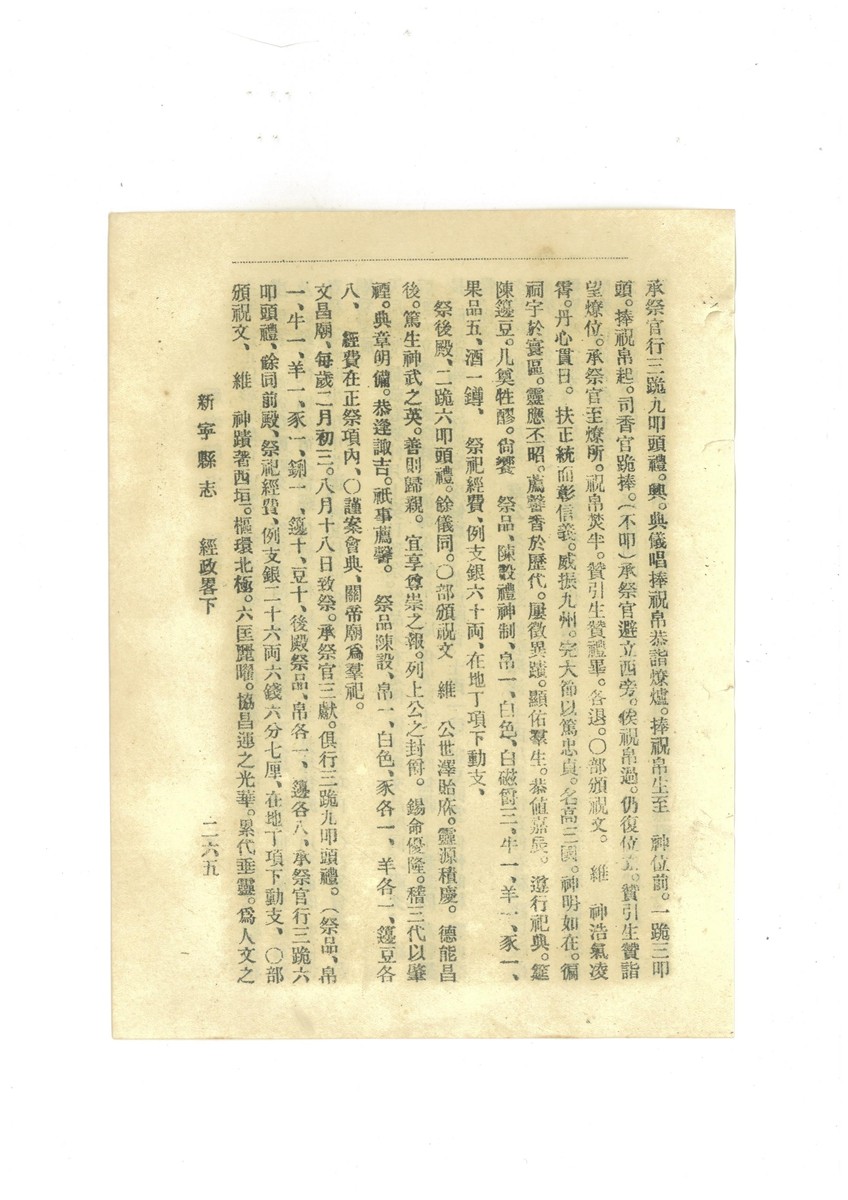 承祭官行三跪九叩頭禮。興。典儀唱捧祝帛恭詣燎爐。捧祝帛生至　神位前。一跪三叩
頭。捧祝帛起。司香官跪捧。(不叩)承祭官避立西旁。俟祝帛過。仍復位立。贊引生贊詣
望燎位。承祭官至燎所。祝帛焚半。贊引生贊禮畢。各退。〇部頒祝文。　維　神浩氣凌
霄。丹心貫日。扶正統而彰信義。威振九州。完大節以篤忠貞。名高三國。神明如在。徧
祠宇於寰區。靈應丕昭。薦馨香於歷代。屢徵異蹟。顯佑羣生。恭值嘉辰。遵行祀典。筵
陳籩豆。几奠牲醪。尙饗　祭品、陳設禮神制、帛一、白色、白磁爵三、牛一、羊一、豕一、
果品五、酒一罇、　祭祀經費、例支銀六十両、在地丁項下動支、
祭後殿、二跪六叩頭禮。餘儀同。〇部頒祝文　維　公世澤貽庥。靈源積慶。德能昌
後。篤生神武之英。善則歸親。宜享尊崇之報。列上公之封爵。錫命優隆。稽三代以肇
禋。典章明備。恭逢諏吉。祇事薦馨。　祭品陳設、帛一、白色、豕各一、羊各一、籩豆各
八、　經費在正祭項內、〇謹案會典、關帝廟爲羣祀。
文昌廟、每歲二月初三。八月十八日致祭。承祭官三獻。俱行三跪九叩頭禮。(祭品、帛
一、牛一、羊一、豕一、鉶一、籩十、豆十、後殿祭品、帛各一、籩各八、承祭官行三跪六
叩頭禮、餘同前殿、祭祀經費、例支銀二十六両六錢六分七厘、在地丁項下動支、〇部
頒祝文、　維　神蹟著西垣。樞環北極。六匡麗曜。協昌運之光華。累代垂靈。爲人文之
新寧縣志　經政畧下　二六五